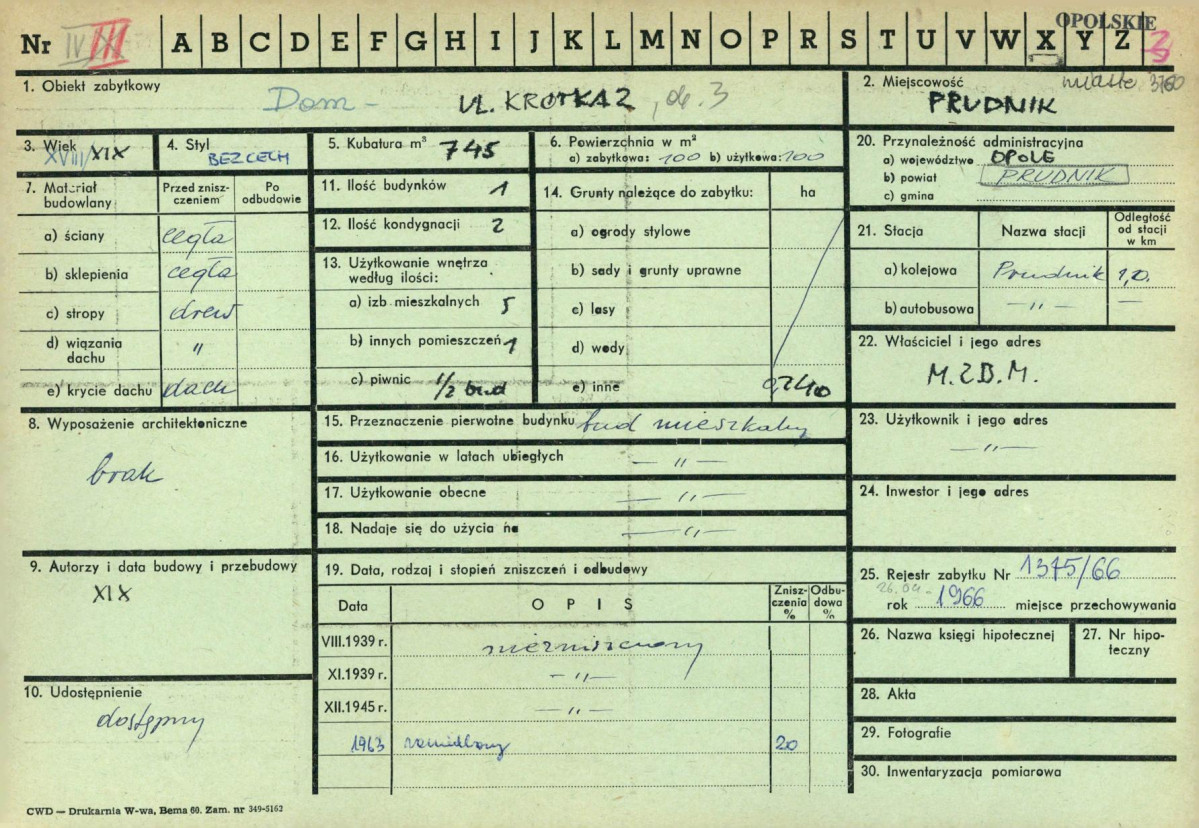 OPOLSKIE
Nr IV III A B C D E F G H I J K L M N O P R S T U V W X Y Z 3
1. Obiekt zabytkowy
Dom - UL. KROTKA 2, ob. 3
2. Miejscowość miasto 3760
PRUDNIK
3. Wiek
XVIII/XIX
4. Styl
BEZ CECH
5. Kubatura m³ 745
6. Powierzchnia w m²
a) zabytkowa: 100 b) użytkowa: 100
20. Przynależność administracyjna
a) województwo OPOLE
b) powiat PRUDNIK
c) gmina
7. Materiał budowlany
Przed zniszczeniem
Po odbudowie
a) ściany cegła
b) sklepienia cegła
c) stropy drew
d) wiązania dachu "
e) krycie dachu dach
11. Ilość budynków 1
12. Ilość kondygnacji 2
13. Użytkowanie wnętrza
według ilości:
a) izb mieszkalnych 5
b) innych pomieszczeń 1
c) piwnic 1/2 bud
14. Grunty należące do zabytku: ha
a) ogrody stylowe
b) sady i grunty uprawne
c) lasy
d) wody
e) inne
21. Stacja Nazwa stacji Odległość od stacji w km
a) kolejowa Prudnik 1,0.
b) autobusowa — " — —
22. Właściciel i jego adres
M.Z.B.M.
8. Wyposażenie architektoniczne
brak
15. Przeznaczenie pierwotne budynku bud mieszkalny
16. Użytkowanie w latach ubiegłych — " —
17. Użytkowanie obecne — " —
18. Nadaje się do użycia na — " —
23. Użytkownik i jego adres
— " —
24. Inwestor i jego adres
9. Autorzy i data budowy i przebudowy
XIX
10. Udostępnienie
dostępny
19. Data, rodzaj i stopień zniszczeń i odbudowy
Data OPIS Zniszczenia % Odbudowa %
VIII.1939 r. niezniszczony
XI.1939 r. - " -
XII.1945 r. - " -
1963 zaniedbany 20
25. Rejestr zabytku Nr 1375/66
26.04.
rok 1966 miejsce przechowywania
26. Nazwa księgi hipotecznej
27. Nr hipoteczny
28. Akta
29. Fotografie
30. Inwentaryzacja pomiarowa
CWD — Drukarnia W-wa, Bema 60. Zam. nr 349-5162